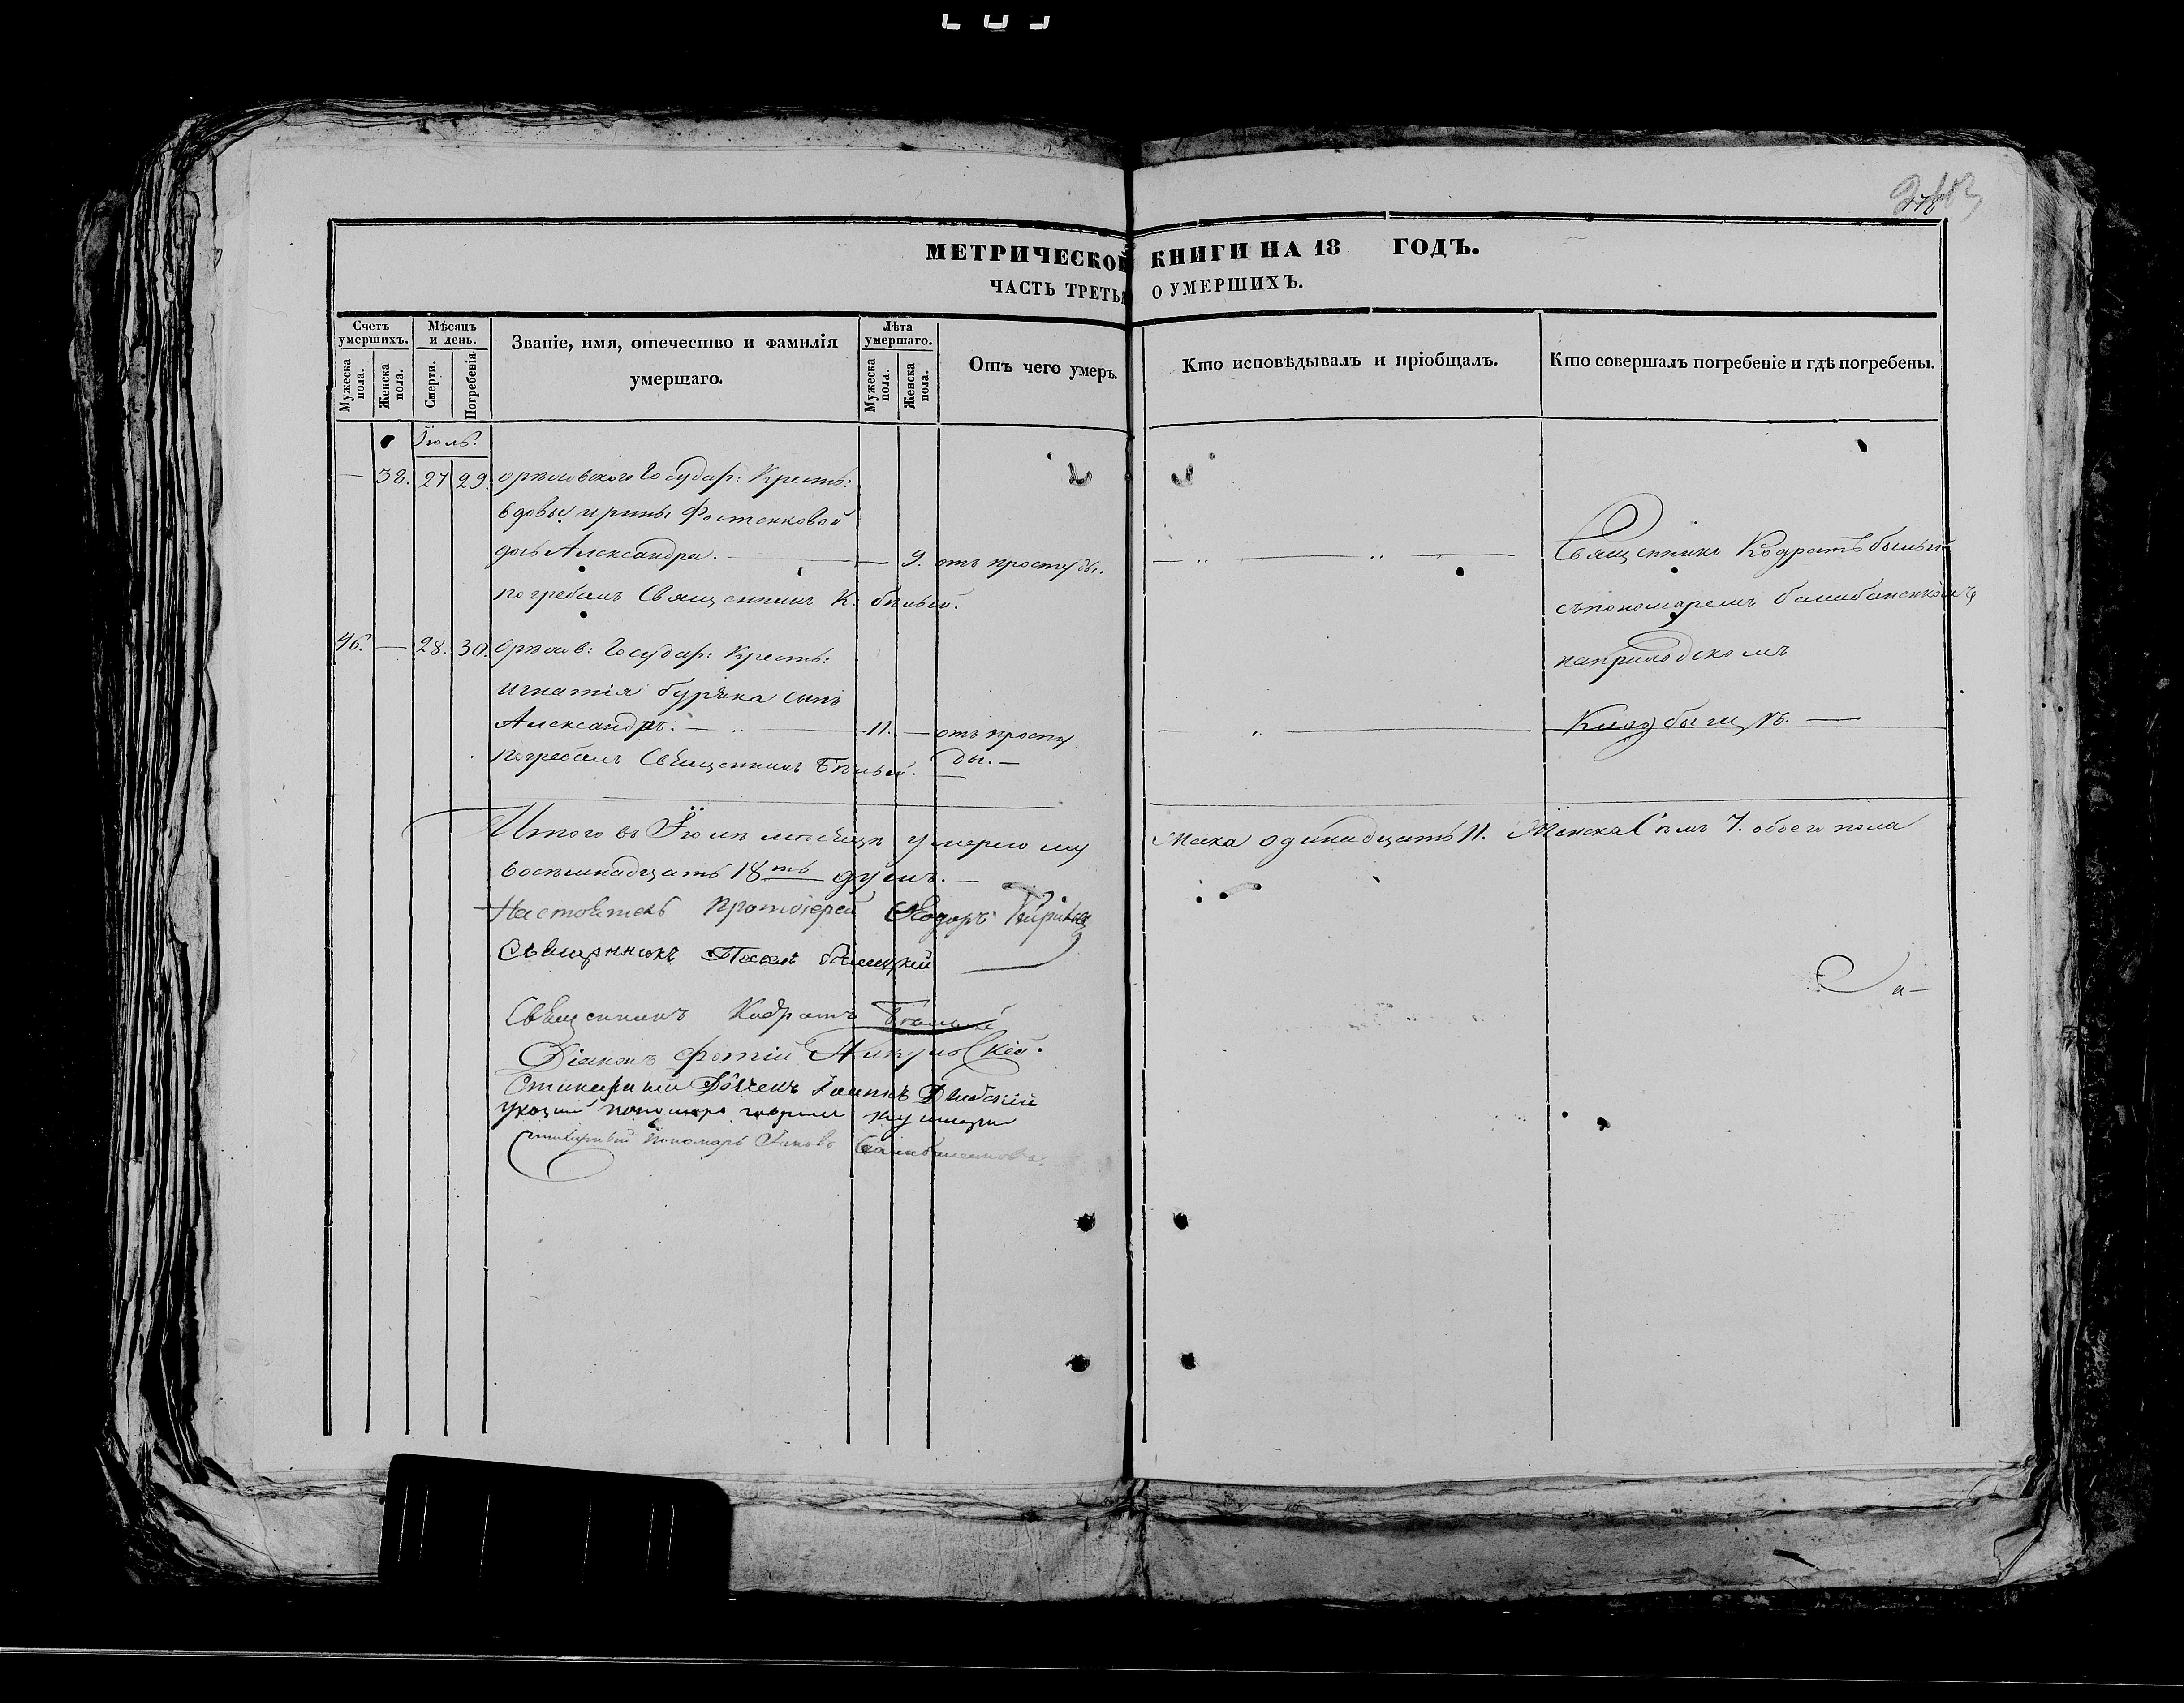 МЕТРИЧЕСКОЙ КНИГИ НА 18 ГОДЪ.
ЧАСТЬ ТРЕТЬЯ О УМЕРШИХЪ.
Счетъ умершихъ. Мѣсяцъ и день. Званіе, имя, отечество и фамилія умершаго. Лѣта умершаго. Отъ чего умеръ. Кто исповѣдывалъ и пріобщалъ. Кто совершалъ погребеніе и гдѣ погребены.
Мужеска пола. Женска пола. Смерти. Погребенія. Мужеска пола. Женска пола.
Іюль.
— 38. 27 29. Орѣховскаго Государ: Кресть:
вдовы Ирины Фостенковой
дочь Александра. — 9. отъ простуды.
погребалъ Священникъ К. Бѣлый.
46. — 28. 30. Орѣхов: Государ: Кресть:
Игнатія Буряка сынъ
Александръ. — 11. — отъ просту
ды. —
погребалъ Священникъ Бѣлый.
Священникъ Кодратъ Бѣлый
съ пономаремъ
на приходскомъ
Кладбищѣ. —
Итого въ Іюлѣ мѣсяцѣ умерло му
жеска одинадцать 11. Женска Семь 7. обоего пола
восемнадцать 18ть душъ. —
Настоятель Протоіерей Ѳеодоръ
Священникъ
Священникъ Кодратъ Бѣлый
Діаконъ Фотій
Стихарный Іоаннъ
пономарь
Стихарный Пономарь Яковъ